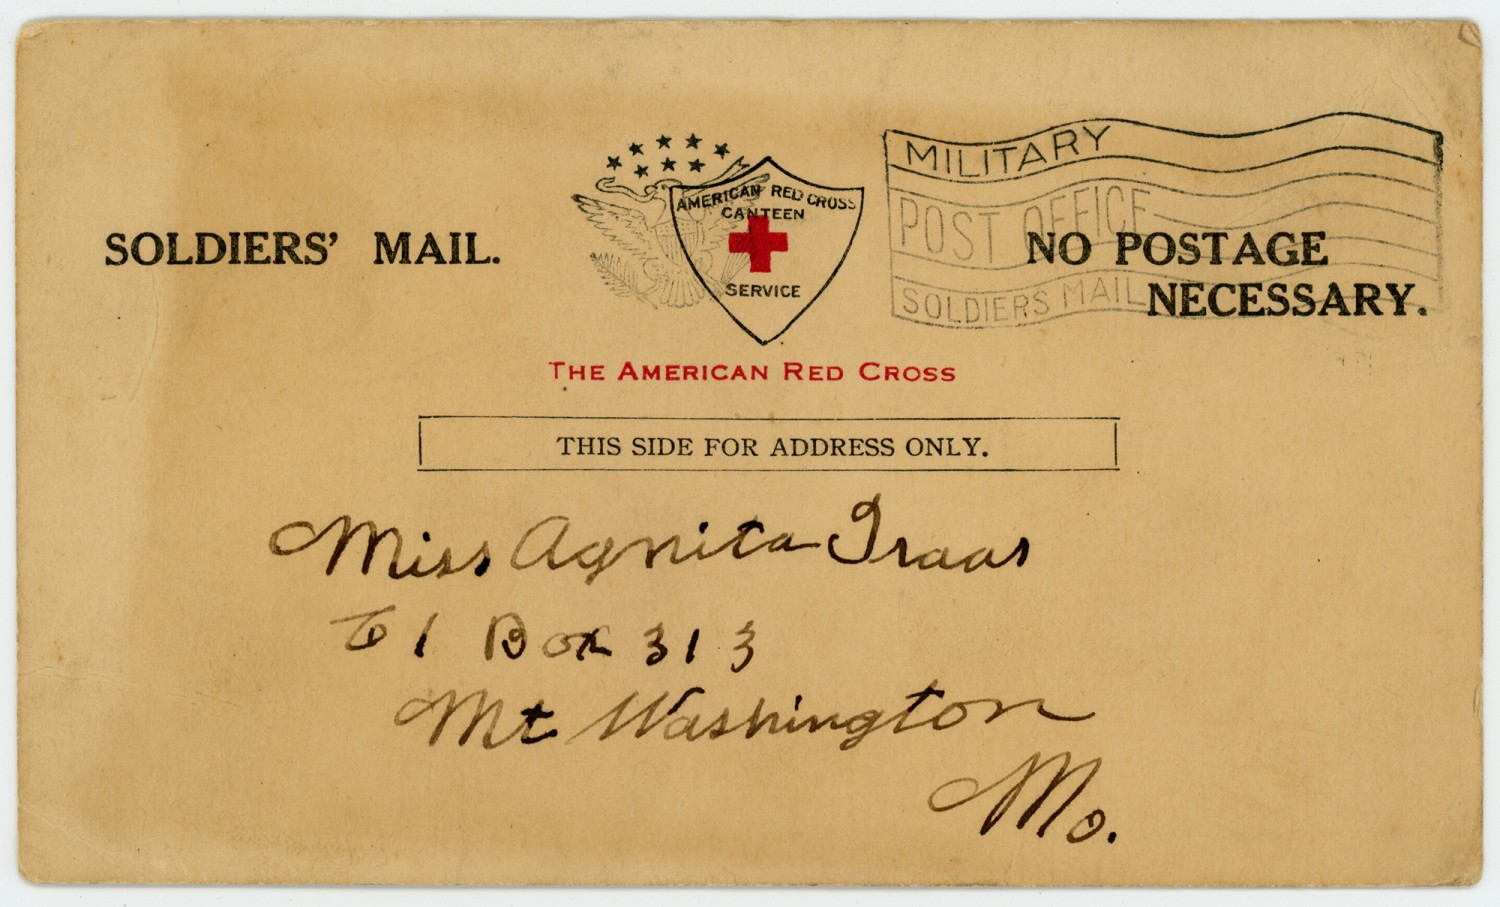 MILITARY
POST OFFICE
SOLDIERS MAIL
AMERICAN RED CROSS
CANTEEN
SERVICE
SOLDIERS' MAIL.
NO POSTAGE
NECESSARY.
THE AMERICAN RED CROSS
THIS SIDE FOR ADDRESS ONLY.
Miss Agnita
1 Box 313
Mt Washington
Mo.